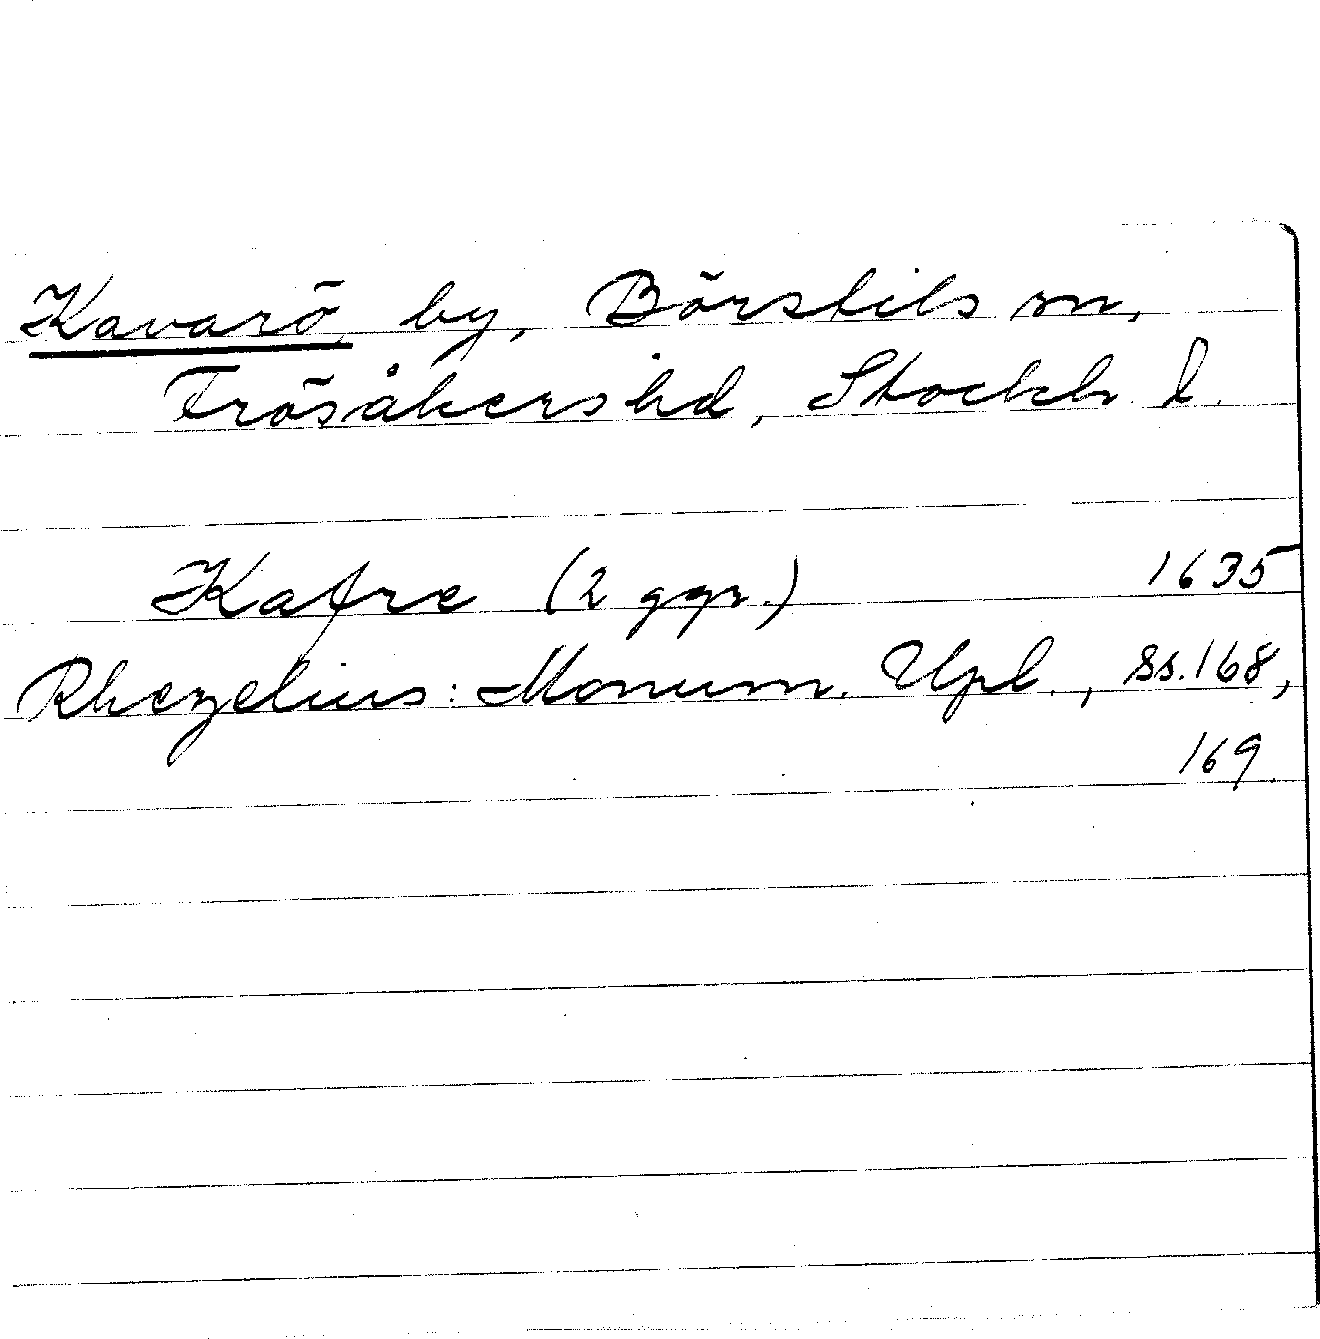 Kavarö by, Börstils sn,
Frösåkers hd, Stockh. l.
Kafre (2 ggr.) 1635
Rhezelius: Monum. Upl., ss. 168,
169.